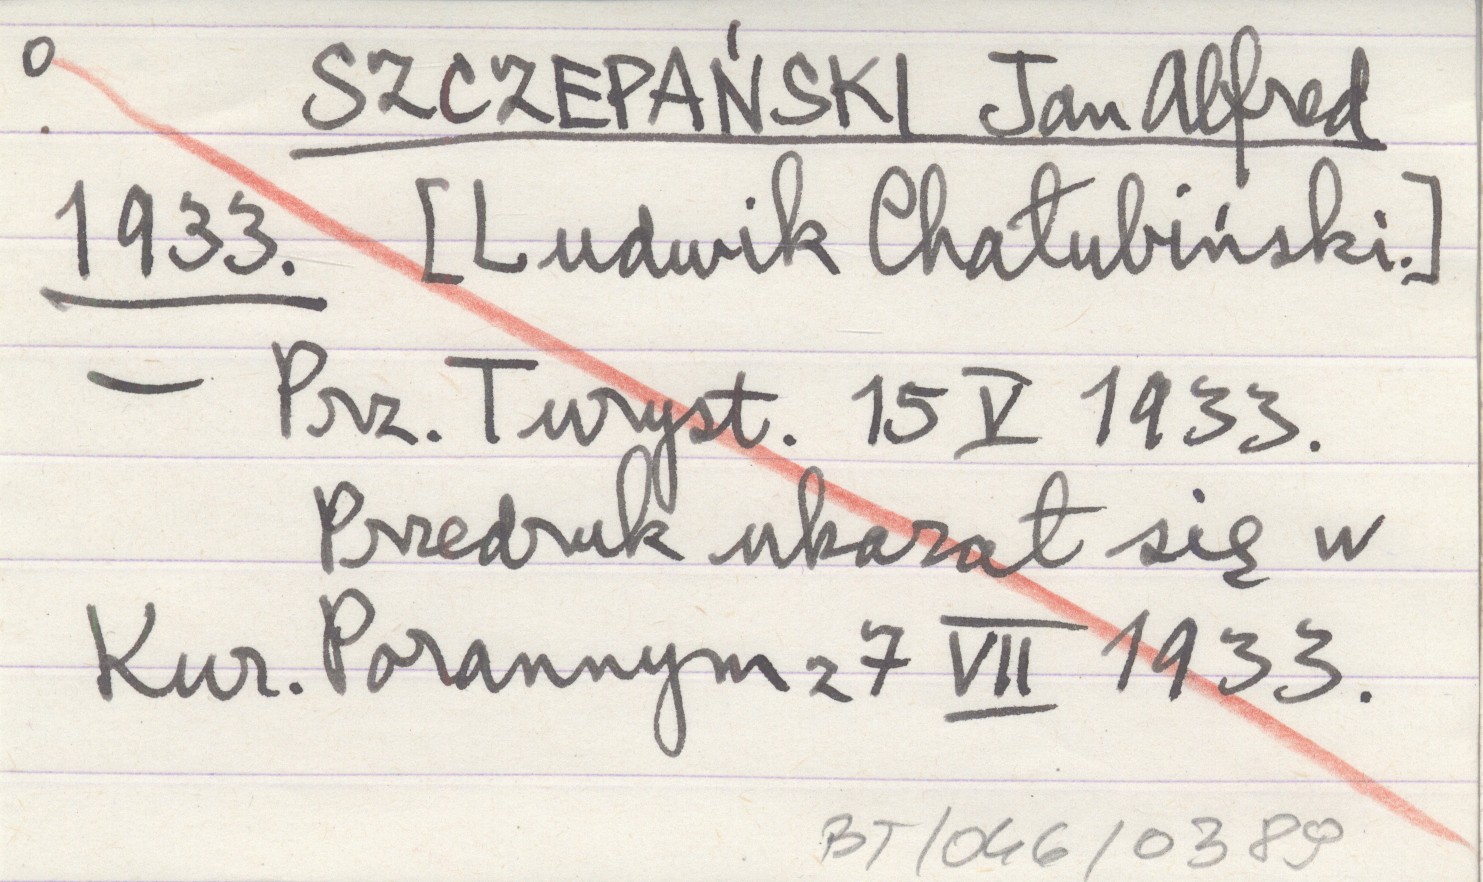 o SZCZEPAŃSKI Jan Alfred
1933. [Ludwik Chałubiński.]
— Prz. Turyst. 15 V 1933.
Przedruk ukazał się w
Kur. Porannym z 7 VII 1933.
BT/046/0389